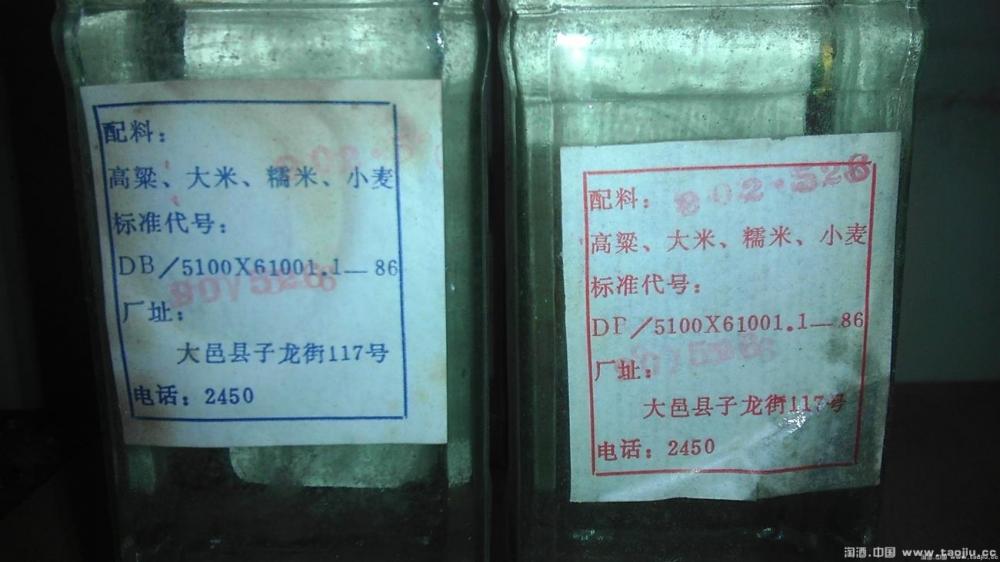 配料：
高粱、大米、糯米、小麦
标准代号：
DB/5100X61001.1—86
厂址：
大邑县子龙街117号
电话：2450
配料：
802·526
高粱、大米、糯米、小麦
标准代号：
DB/5100X61001.1—86
厂址：
大邑县子龙街117号
电话：2450
淘酒.中国 www.taojiu.cc